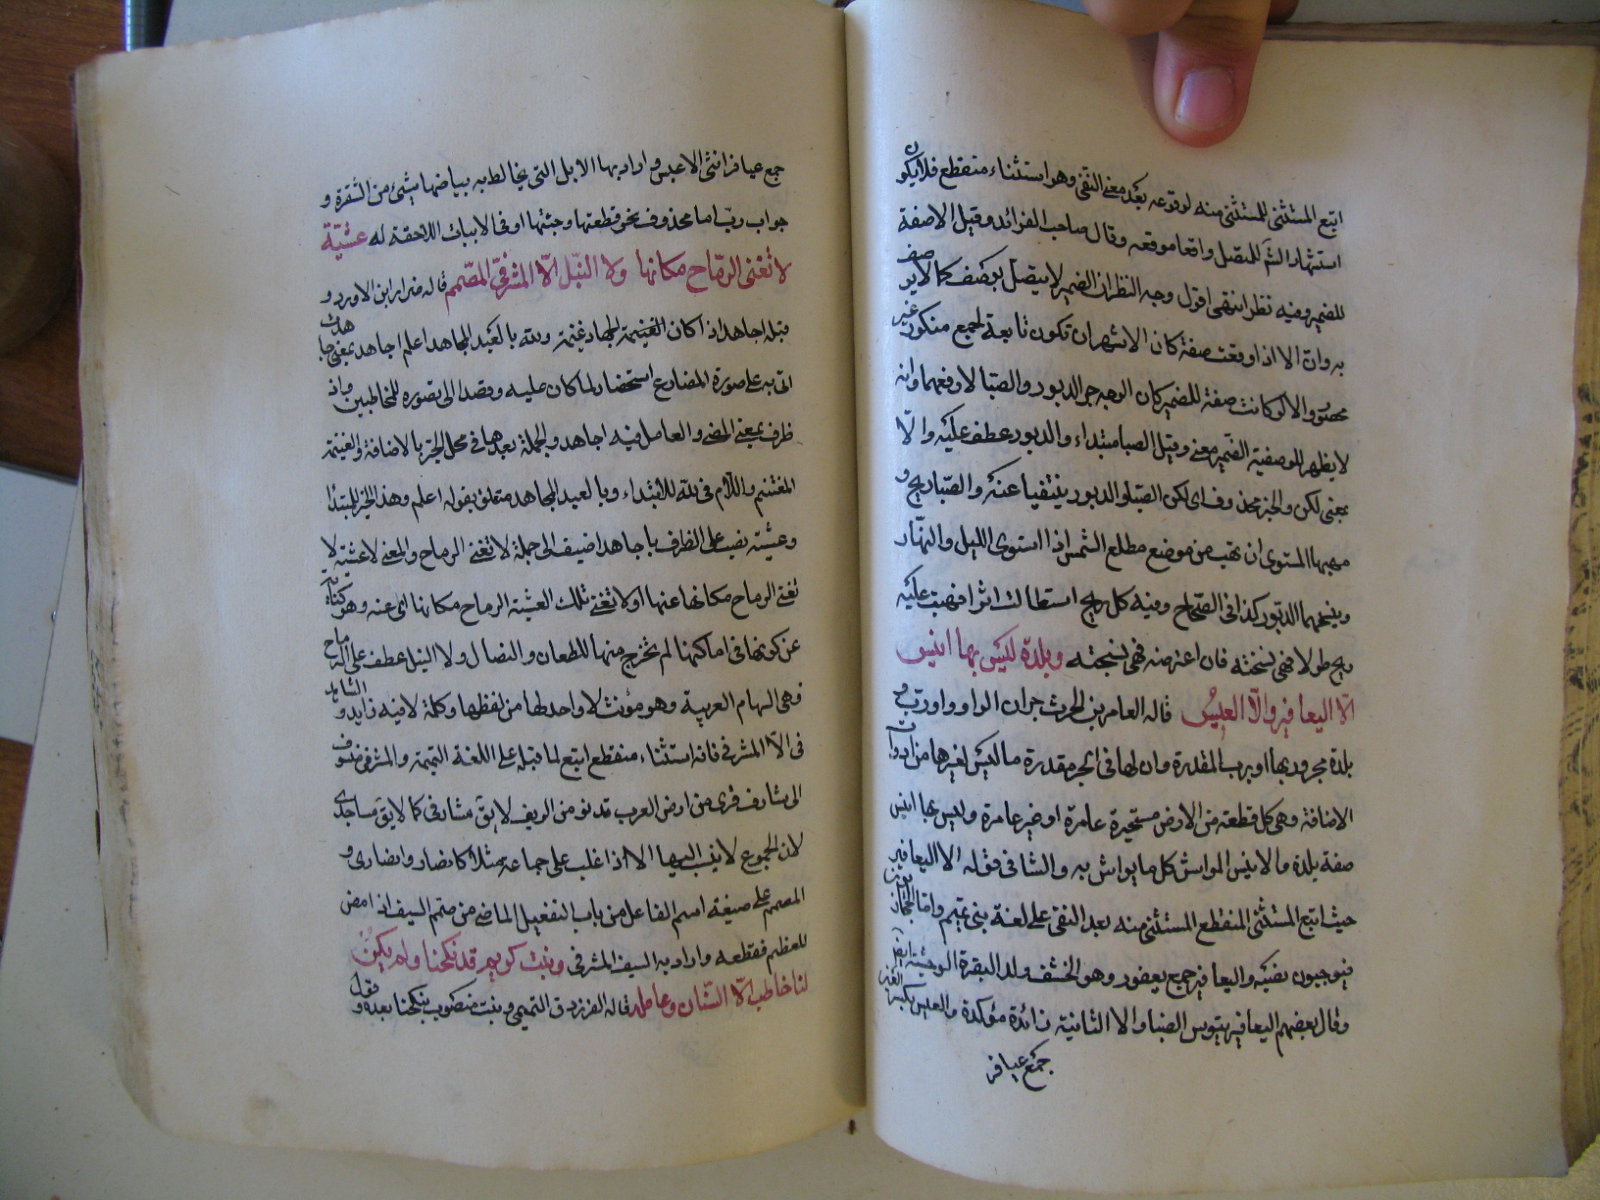 اتبع المستثنى للمستثنى منه لوقوعه بعد معنى النفى وهو استثناء منقطع فلا يكون
استشهاد الش للمتصل واقعا موقعه وقال صاحب الفرائد وقيل الا صفة
للضمير وفيه نظر انتهى اقول وجه النظر ان الضمير لا يتصل بوصف كما لا يوصف
به وان الا اذا وقعت صفة كان الاشهر ان تكون تابعة لجمع منكور غير
محصور والا لو كانت صفة للضمير كان الوجه جر الدبور والصبا لا رفعهما وانه
لا يظهر للوصفية الضمير معنى وقيل الصبا مبتداء والدبور عطف عليه والا
بمعنى لكن والخبر محذوف اى لكن الصبا والدبور ينتفيا عنه والصبا ريح و
مهبها المستوى ان تهب من موضع مطلع الشمس اذا استوى الليل والنهار
ونيحها الدبور كذا فى الصحاح وفيه كل ريح استطالت اثرا فهبت عليه
ريح طولا فهى نسخته فان اعترضه فهى نسجته وبلدة ليس بها انيس
الا اليعافير والا العيس قاله العامر بن الحرث جران الواو واو رب و
بلدة مجرور بها او برب المقدرة وان لها فى الجر مقدرة ما ليس لغيرها من ادوات
الاضافة وهى كل قطعة من الارض مستحيزة عامرة او غير عامرة وليس بها انيس
صفة بلدة والانيس الموانس كل ما يوانس به والشا فى قوله الا اليعافير
حيث اتبع المستثنى المنقطع المستثنى منه بعد النفى على لغة بنى تميم واما الحجازيون
فيوجبون نصبه واليعافير جمع يعفور وهو الخشف ولد البقرة الوحشية
وقال بعضهم اليعافير تيوس الضبا والا الثانية زائدة مؤكدة والعيس بكسر العين
جمع عيا فر
جمع عيا فر انثى الاعيس واراد بها الابل التى يخالط به بياضها شىء من الشقرة و
جواب رب اما محذوف نحو قطعتها وجئتها او فى الابيات اللاحقة له عشية
لا تغنى الرماح مكانها ولا النبل الا المشرفى المصمم قاله ضرار ابن الاورد و
قبله اجاهد اذا كان الغنيمة الجهاد غنيمة ولله بالعبد المجاهد اعلم اجاهد بمعنى جاهدت
اتى به على صورة المضارع استحضارا لما كان عليه وقصدا الى تصوره للمخاطبين واذ
ظرف بمعنى المضى والعامل فيه اجاهد والجملة بعدها فى محل الجر بالاضافة والغنيمة
المغتنم واللام فى لله للابتداء وبالعبد المجاهد متعلق بقوله اعلم وهذا الخبر للمبتدا
وعشية نصب على الظرف باجاهد اضيف الى جملة لا تغنى الرماح والمعنى لا عشية لا
تغنى الرماح مكانها عنها او لا تغنى تلك العشية الرماح مكانها اى عنه وهو كناية
عن كونها فى اماكنها لم تخرج منها للطعان والنضال ولا النبل عطف على الرماح
فهى السهام العربية وهو مؤنث لا واحد لها من لفظها وكلمة لا فيه زايد والشاهد
فى الا المشرفى فانه استثناء منقطع اتبع لما قبله على اللغة التميمة والمشرفى منسوب
الى مشارف قرى من ارض العرب تدنو من الريف لا يق مشارفى كما لا يق مساجدى
لان الجموع لا ينسب اليها الا اذا غلب على جماعة مثلا كانصار وانصارى و
المصمم على صيغة اسم الفاعل من باب التفعيل الماضى من صمم السيف اذا مضى
للعظم فقطعه واراد به السيف المشرفى وبنت كريم قد نكحنا ولم يكن
لنا خاطب الا السنان وعامله قاله الفرزدق التميمى وبنت منصوب بنكحنا بعده وقوله